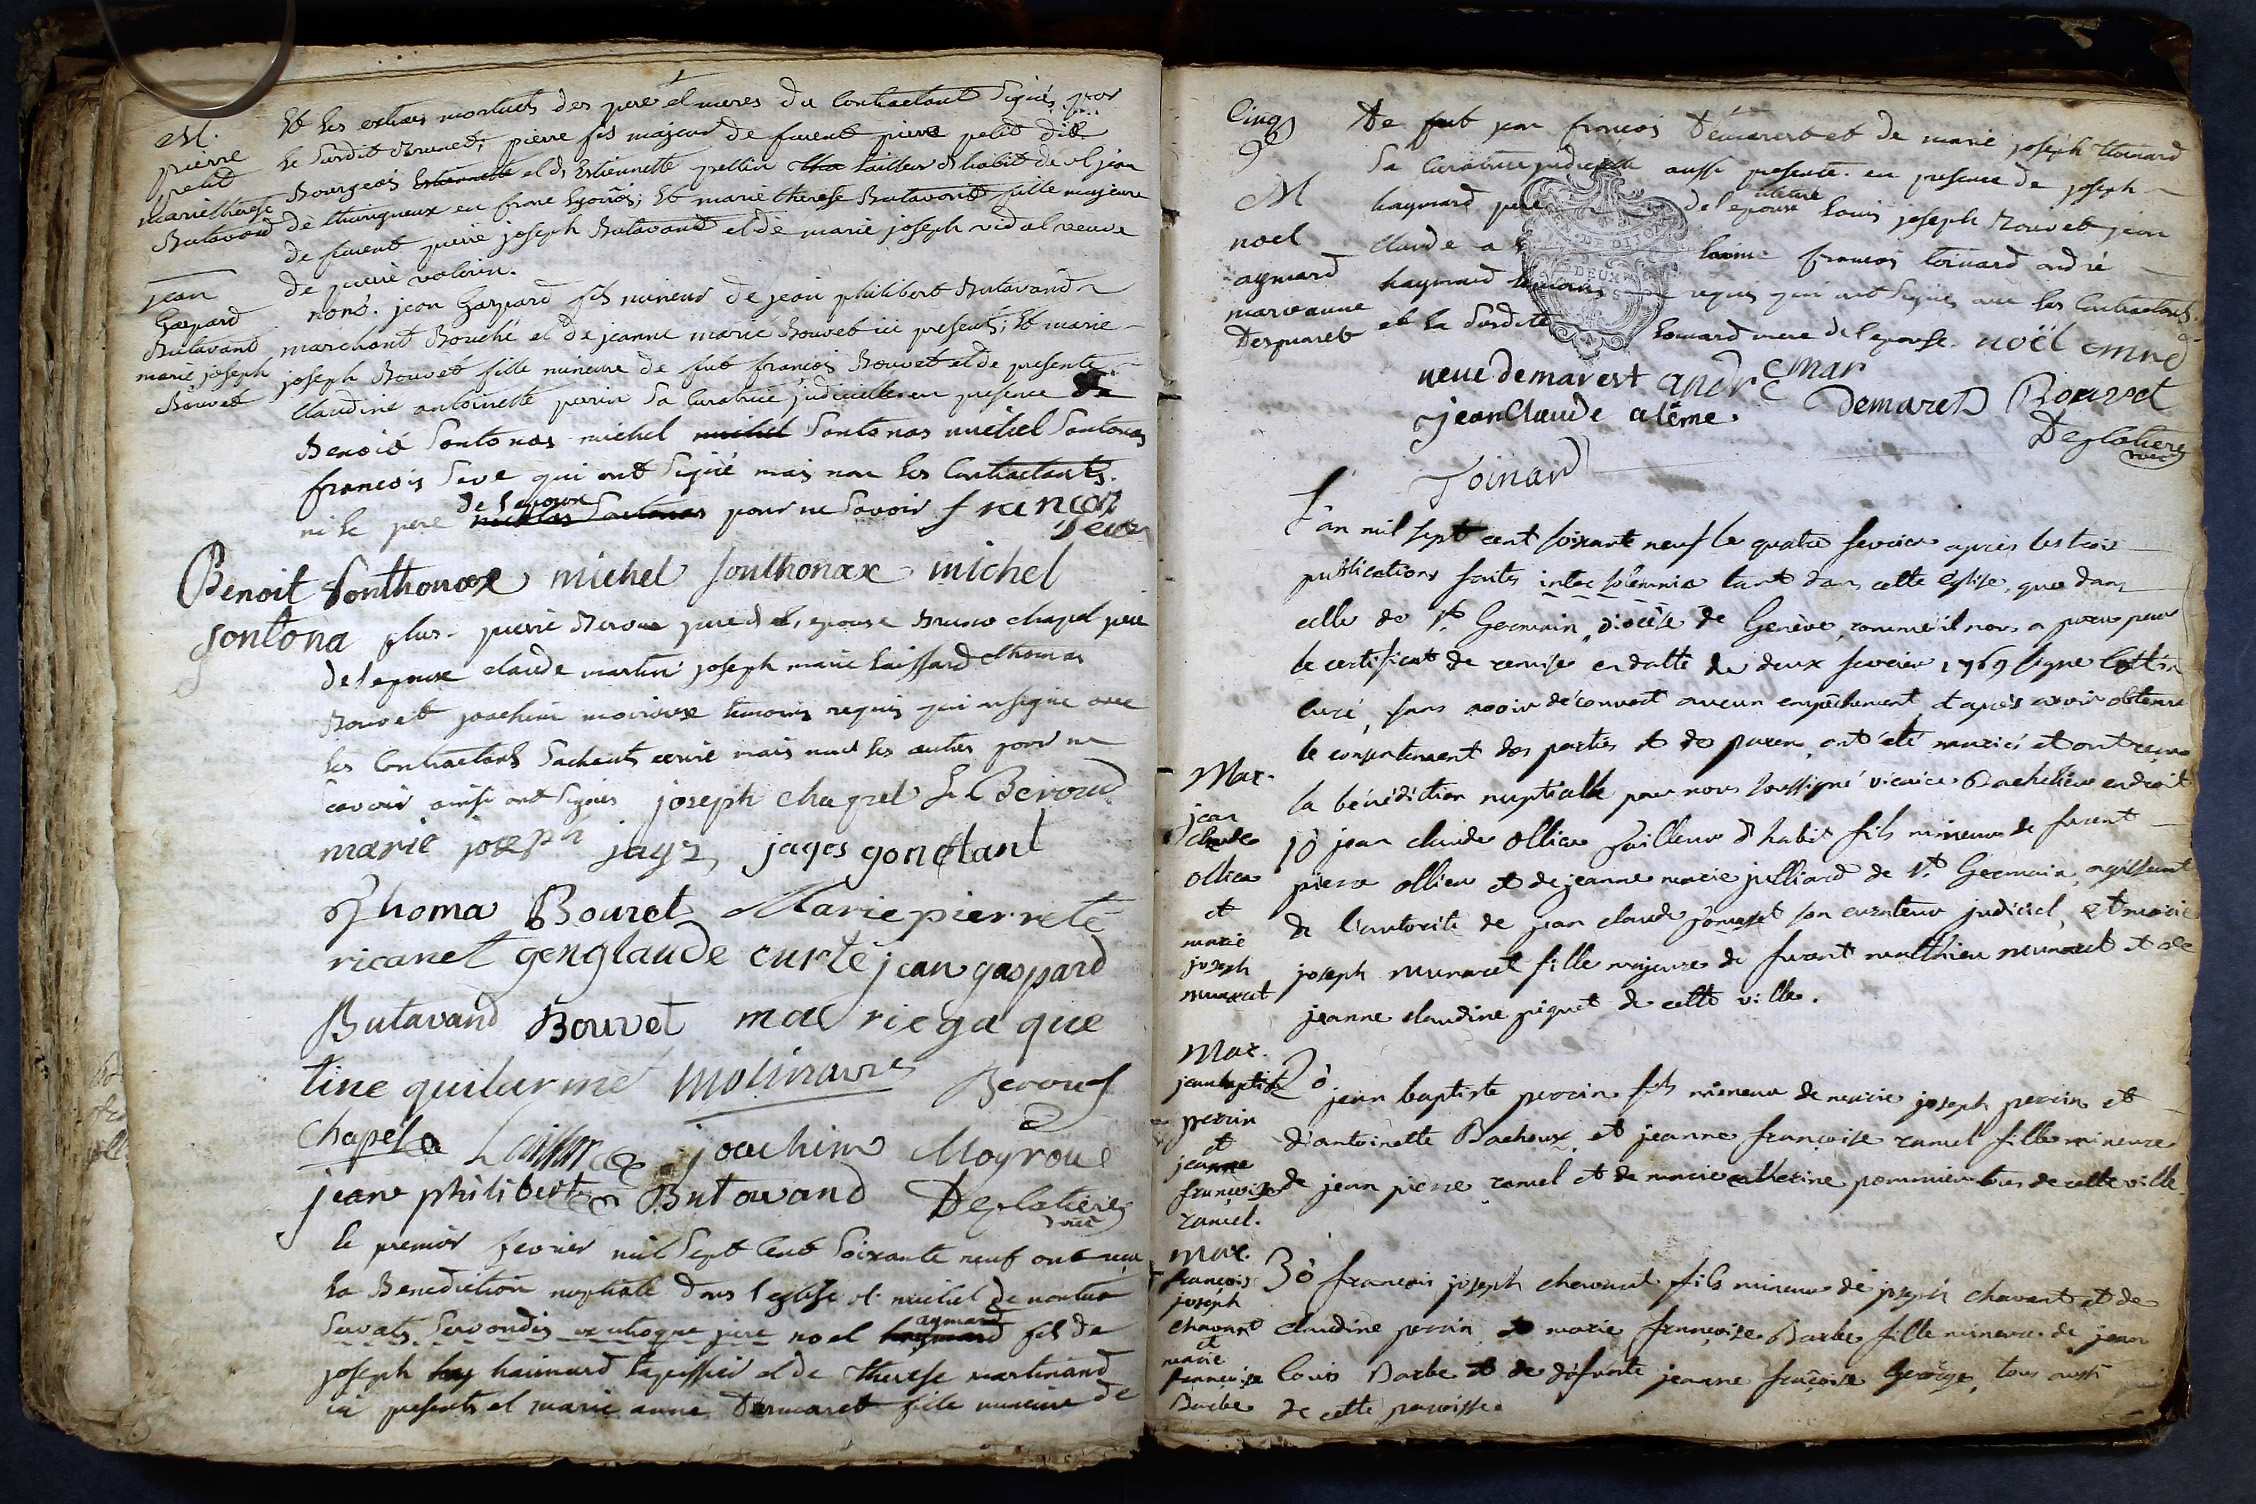 M.
pierre
petit
marie therese
Butavand
Et les extraits mortuels des pere et meres du Contractant signés par
le susdit Brunet; pierre fils majeur de furent pierre petit dit
Bourgeois et de Estiennette tailleur d'habit de st jean
de thurigneux en franc lyonois; Et marie therese Butavant fille majeure
de furent pierre joseph Butavand et de marie joseph vidal veuve
de pierre volerin.
jean
Gaspard
Butavant
marie joseph
Bouvet
nono. jean Gaspard fils mineur de jean philibert Butavand
marchant Bouché et de jeanne marie Bouvet ici presents; Et marie
joseph Bouvet fille mineure de fut francois Bouvet et de presente
claudine antoinette perrin sa Curatrice judicielle en presence de
Benoit Sontonas michel michel Sontonas michel Sontonas
francois Seve qui ont signé mais non les Contractants.
ni le pere de l'epoux pour ne Savoir françoi
Seve
Benoit Sonthonax michel sonthonax michel
sontona plus. pierre Beroud pere de l'epouse Bruno chapel pere
de l'epoux claude martin joseph marie Laissard thomas
Bouvet joachim moiroux temoins requis qui ont signé avec
les Contractants Sachants ecrire mais non les autres pour ne
savoir ainsi ont signés joseph chapel L Beroud
marie joseph jagz jaqes gonstant
Thoma Bouvet Marie pierrete
ricanet genglaude curte jean gaspard
Butavand Bouvet marie ga que
tine quilarme Molinaire Beroud
Chapel joachim Moyroue
jean philibert Butavand Deglatieres
vic
le premier fevrier mil Sept Cent Soixante neuf ont reçu
la Benediction nuptiale dans l'eglise st michel de nantua
Servatis Servandis utroque jure noel aymard fils de
joseph hay haimard tapissier et de therese martinand
ici presents et marie anne Demaret fille mineure de
Cinq
9e
M
noel
aymard
marieanne
Desmaret
De fut jean françois Démarest et de marie joseph thoinard
Sa Curatrice judicielle aussi presente. en presence de joseph
haymard pere de l'epoux Louis joseph Bouvet jean
claude a francois toinard andré
haymard temoins requis qui ont signés avec les Contractants
et la Susdite touard mere de l'epouse. noël emard
veue demarest andre emar
jean Claude aleme. Demaret Bouvet
Deglatieres
vic
Toinard
L'an mil sept cent soixante neuf le quatre fevrier après les trois
publications faites inter solemnia tant dans cette Eglise, que dans
celle de St Germain, diocèse de Genève, comme il nous a paru par
le certificat de remise en datte du deux fevrier 1769 signé
curé, sans avoir découvert aucun empêchement, et après avoir obtenu
le consentement des parties et de paren, ont été mariés et ont reçus
la bénédiction nuptialle par nous soussigné vicaire Bachelier en droit
Mar.
jean
claude
ollier
et
marie
joseph
munaret
1o jean claude ollier tailleur d'habit fils mineur de furent
pierre ollier et de jeanne marie julliard de St Germain, agissant
de l'autorité de jean claude son curateur judiciel, et marie
joseph munaret fille majeure de furent matthieu munaret et de
jeanne claudine piquet de cette ville.
Mar.
jean baptiste
perrin
et
jeanne
françoise
ramel.
2o jean baptiste perrin fils mineur de marie joseph perrin et
d'antoinette Bacheux, et jeanne françoise ramel fille mineure
de jean pierre ramel et de marie catherine pommier tous de cette ville
Mar.
françois
joseph
chavant
et
marie
francoise
Barbe
3o francois joseph chavant fils mineur de joseph chavant et de
claudine perrin et marie françoise Barbe fille mineure de jean
louis Barbe et de défunte jeanne françoise George, tous aussi
de cette paroisse.